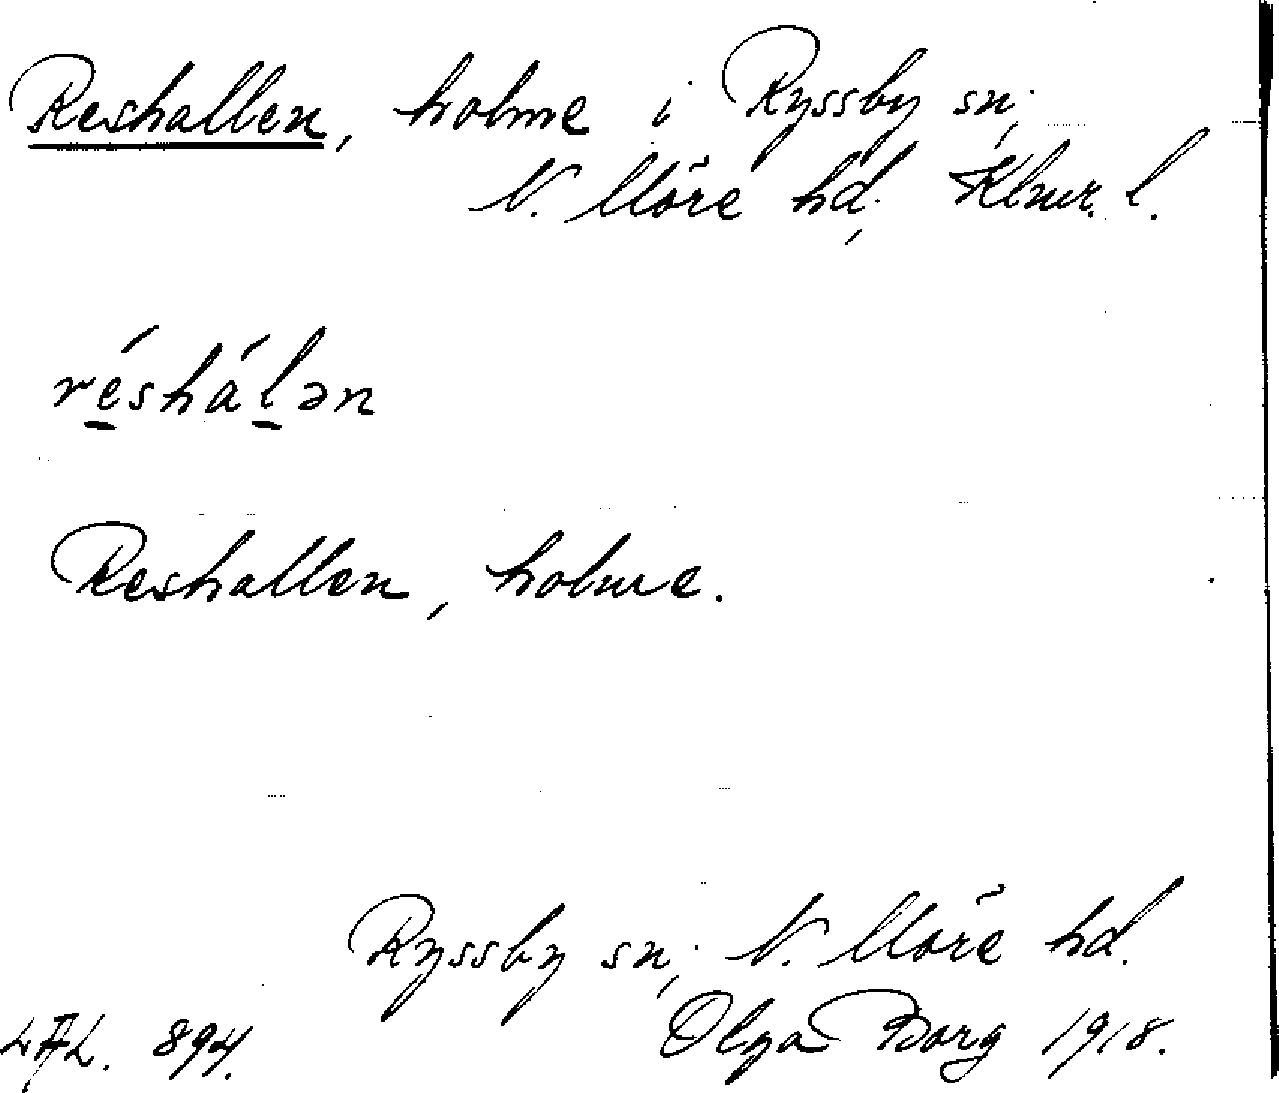 Reshallen, holme i Ryssby sn,
N. Möre hd, Klmr. l.
réshálən
Reshallen, holme.
Ryssby sn, N. Möre hd.
LAL. 894.
Olga Borg 1918.